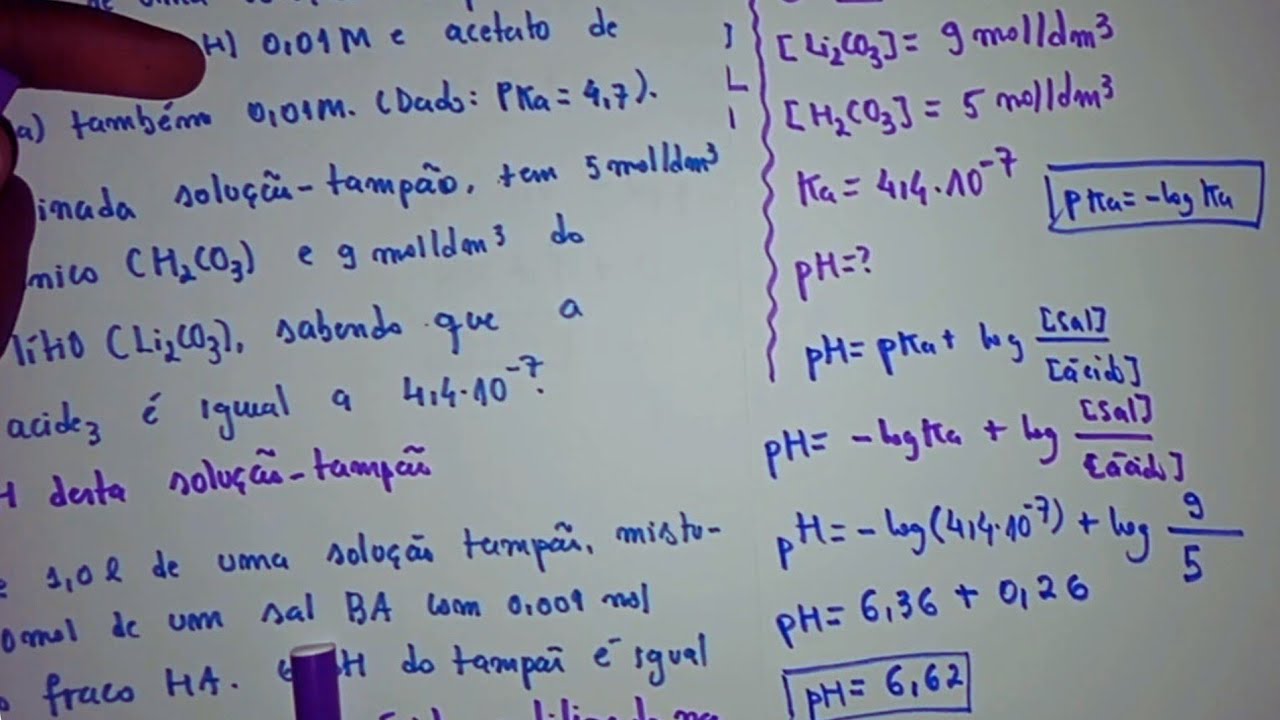 H) 0,01M e acetato de
a) também 0,01M. (Dado: PKa = 4,7).
inada solução-tampão, tem 5 mol/dm³
nico (H₂CO₃) e 9 mol/dm³ do
lítio (Li₂CO₃), sabendo que a
acidez é igual a 4,4·10⁻⁷.
H desta solução-tampão
e 1,0l de uma solução tampão, mistu-
0 mol de um sal BA com 0,009 mol
fraco HA. O pH do tampão é igual
[Li₂CO₃] = 9 mol/dm³
[H₂CO₃] = 5 mol/dm³
Ka = 4,4·10⁻⁷
pKa = -log Ka
pH = ?
pH = pKa + log [sal]/[ácido]
pH = -log Ka + log [sal]/[ácido]
pH = -log(4,4·10⁻⁷) + log 9/5
pH = 6,36 + 0,26
pH = 6,62